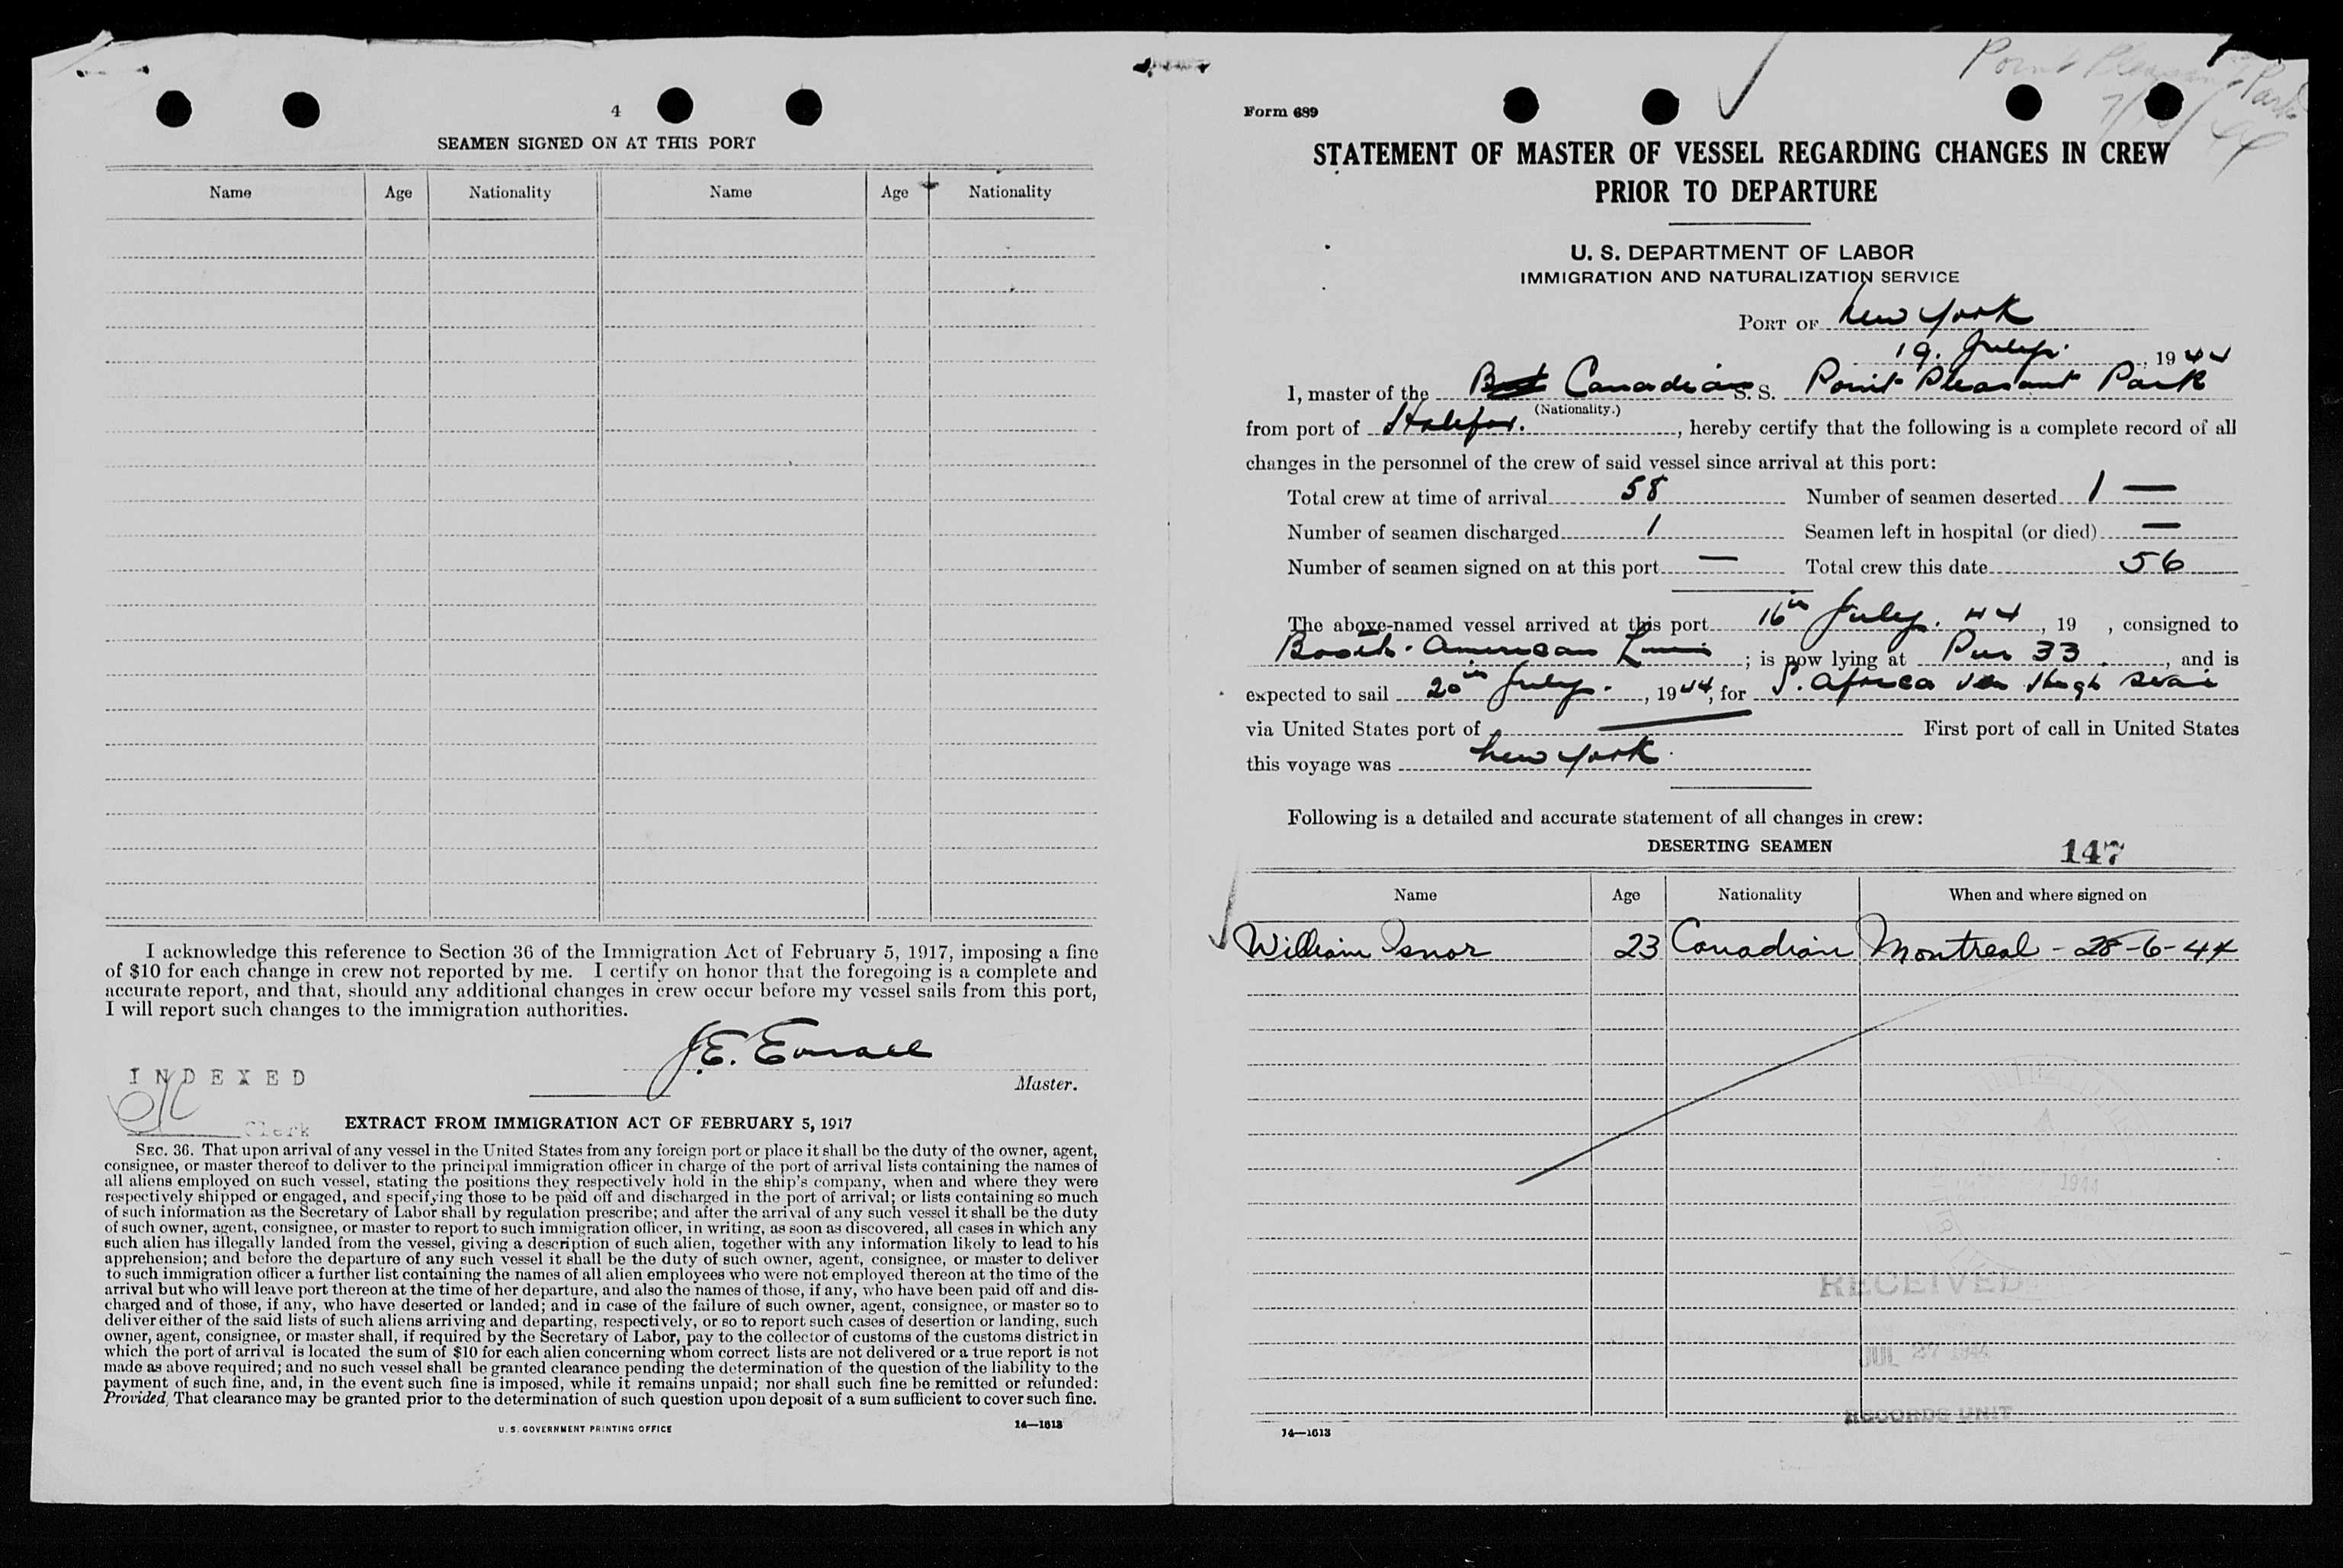 4
SEAMEN SIGNED ON AT THIS PORT
Name Age Nationality Name Age Nationality
I acknowledge this reference to Section 36 of the Immigration Act of February 5, 1917, imposing a fine
of $10 for each change in crew not reported by me. I certify on honor that the foregoing is a complete and
accurate report, and that, should any additional changes in crew occur before my vessel sails from this port,
I will report such changes to the immigration authorities.
J.E.
Master.
INDEXED
Clerk
EXTRACT FROM IMMIGRATION ACT OF FEBRUARY 5, 1917
SEC. 36. That upon arrival of any vessel in the United States from any foreign port or place it shall be the duty of the owner, agent,
consignee, or master thereof to deliver to the principal immigration officer in charge of the port of arrival lists containing the names of
all aliens employed on such vessel, stating the positions they respectively hold in the ship's company, when and where they were
respectively shipped or engaged, and specifying those to be paid off and discharged in the port of arrival; or lists containing so much
of such information as the Secretary of Labor shall by regulation prescribe; and after the arrival of any such vessel it shall be the duty
of such owner, agent, consignee, or master to report to such immigration officer, in writing, as soon as discovered, all cases in which any
such alien has illegally landed from the vessel, giving a description of such alien, together with any information likely to lead to his
apprehension; and before the departure of any such vessel it shall be the duty of such owner, agent, consignee, or master to deliver
to such immigration officer a further list containing the names of all alien employees who were not employed thereon at the time of the
arrival but who will leave port thereon at the time of her departure, and also the names of those, if any, who have been paid off and dis-
charged and of those, if any, who have deserted or landed; and in case of the failure of such owner, agent, consignee, or master so to
deliver either of the said lists of such aliens arriving and departing, respectively, or so to report such cases of desertion or landing, such
owner, agent, consignee, or master shall, if required by the Secretary of Labor, pay to the collector of customs of the customs district in
which the port of arrival is located the sum of $10 for each alien concerning whom correct lists are not delivered or a true report is not
made as above required; and no such vessel shall be granted clearance pending the determination of the question of the liability to the
payment of such fine, and, in the event such fine is imposed, while it remains unpaid; nor shall such fine be remitted or refunded:
Provided, That clearance may be granted prior to the determination of such question upon deposit of a sum sufficient to cover such fine.
U. S. GOVERNMENT PRINTING OFFICE 14—1613
Point Pleasant Park
Form 689
STATEMENT OF MASTER OF VESSEL REGARDING CHANGES IN CREW
PRIOR TO DEPARTURE
U. S. DEPARTMENT OF LABOR
IMMIGRATION AND NATURALIZATION SERVICE
PORT OF New York
19. July. , 1944
I, master of the Canadian S. S. Point Pleasant Park
(Nationality.)
from port of Halifax. , hereby certify that the following is a complete record of all
changes in the personnel of the crew of said vessel since arrival at this port:
Total crew at time of arrival 58 Number of seamen deserted 1 —
Number of seamen discharged 1 Seamen left in hospital (or died) —
Number of seamen signed on at this port — Total crew this date 56
The above-named vessel arrived at this port 16th July. 44 , 19 , consigned to
Booth. American Line ; is now lying at Pier 33 , and is
expected to sail 20th July. , 1944, for S. Africa
via United States port of — First port of call in United States
this voyage was New York.
Following is a detailed and accurate statement of all changes in crew:
DESERTING SEAMEN 147
Name Age Nationality When and where signed on
William Isnor 23 Canadian Montreal - 28-6-44
1944
RECEIVED
JUL 27 1944
RECORDS UNIT
14—1613